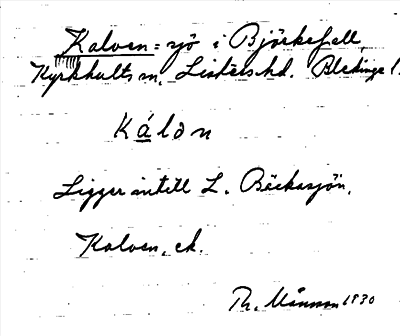 Kalven = sjö i Björkefell,
Kyrkhults sn, Listers hd. Blekinge l.
Kálon
Ligger intill L. Böckasjön.
Kalven, ek.
Th. Månsson 1930